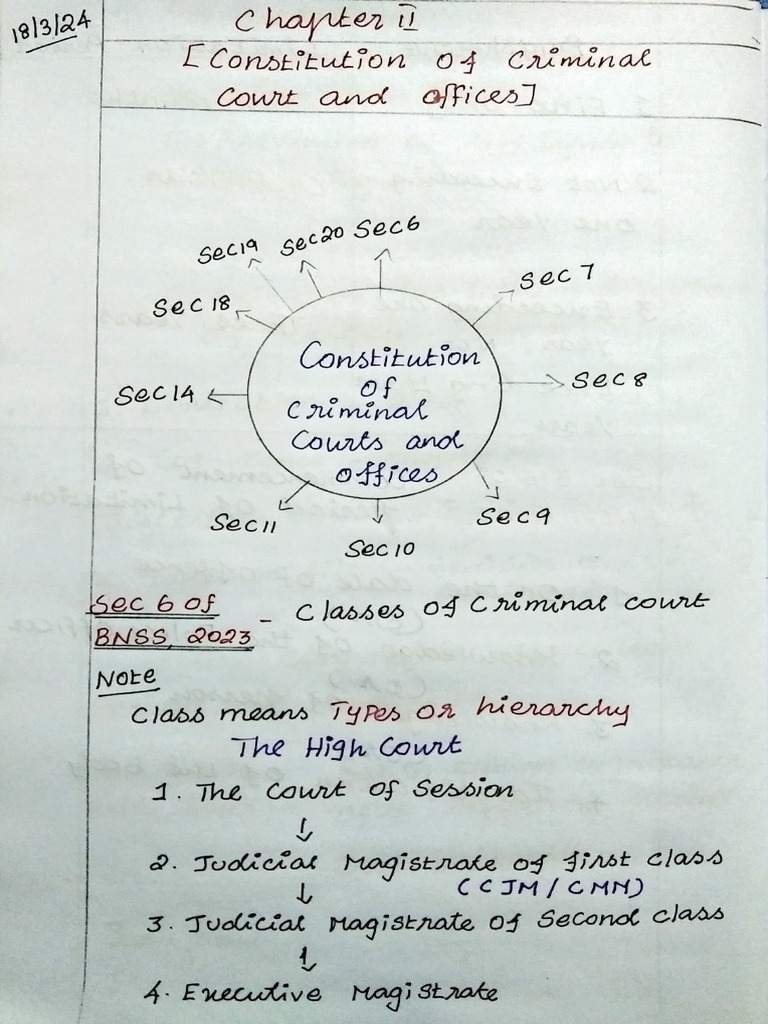 18/3/24
Chapter II
[Constitution of Criminal
Court and offices]
Sec19
Sec20
Sec6
Sec 7
Sec 18
Sec 8
Sec14
Constitution
of
Criminal
Courts and
offices
Sec11
Sec10
Sec9
Sec 6 of
BNSS, 2023
- Classes of Criminal court
Note
Class means Types or hierarchy
The High Court
1. The Court of Session
↓
2. Judicial Magistrate of first class
↓
(CJM/CMM)
3. Judicial Magistrate of Second class
↓
4. Executive Magistrate